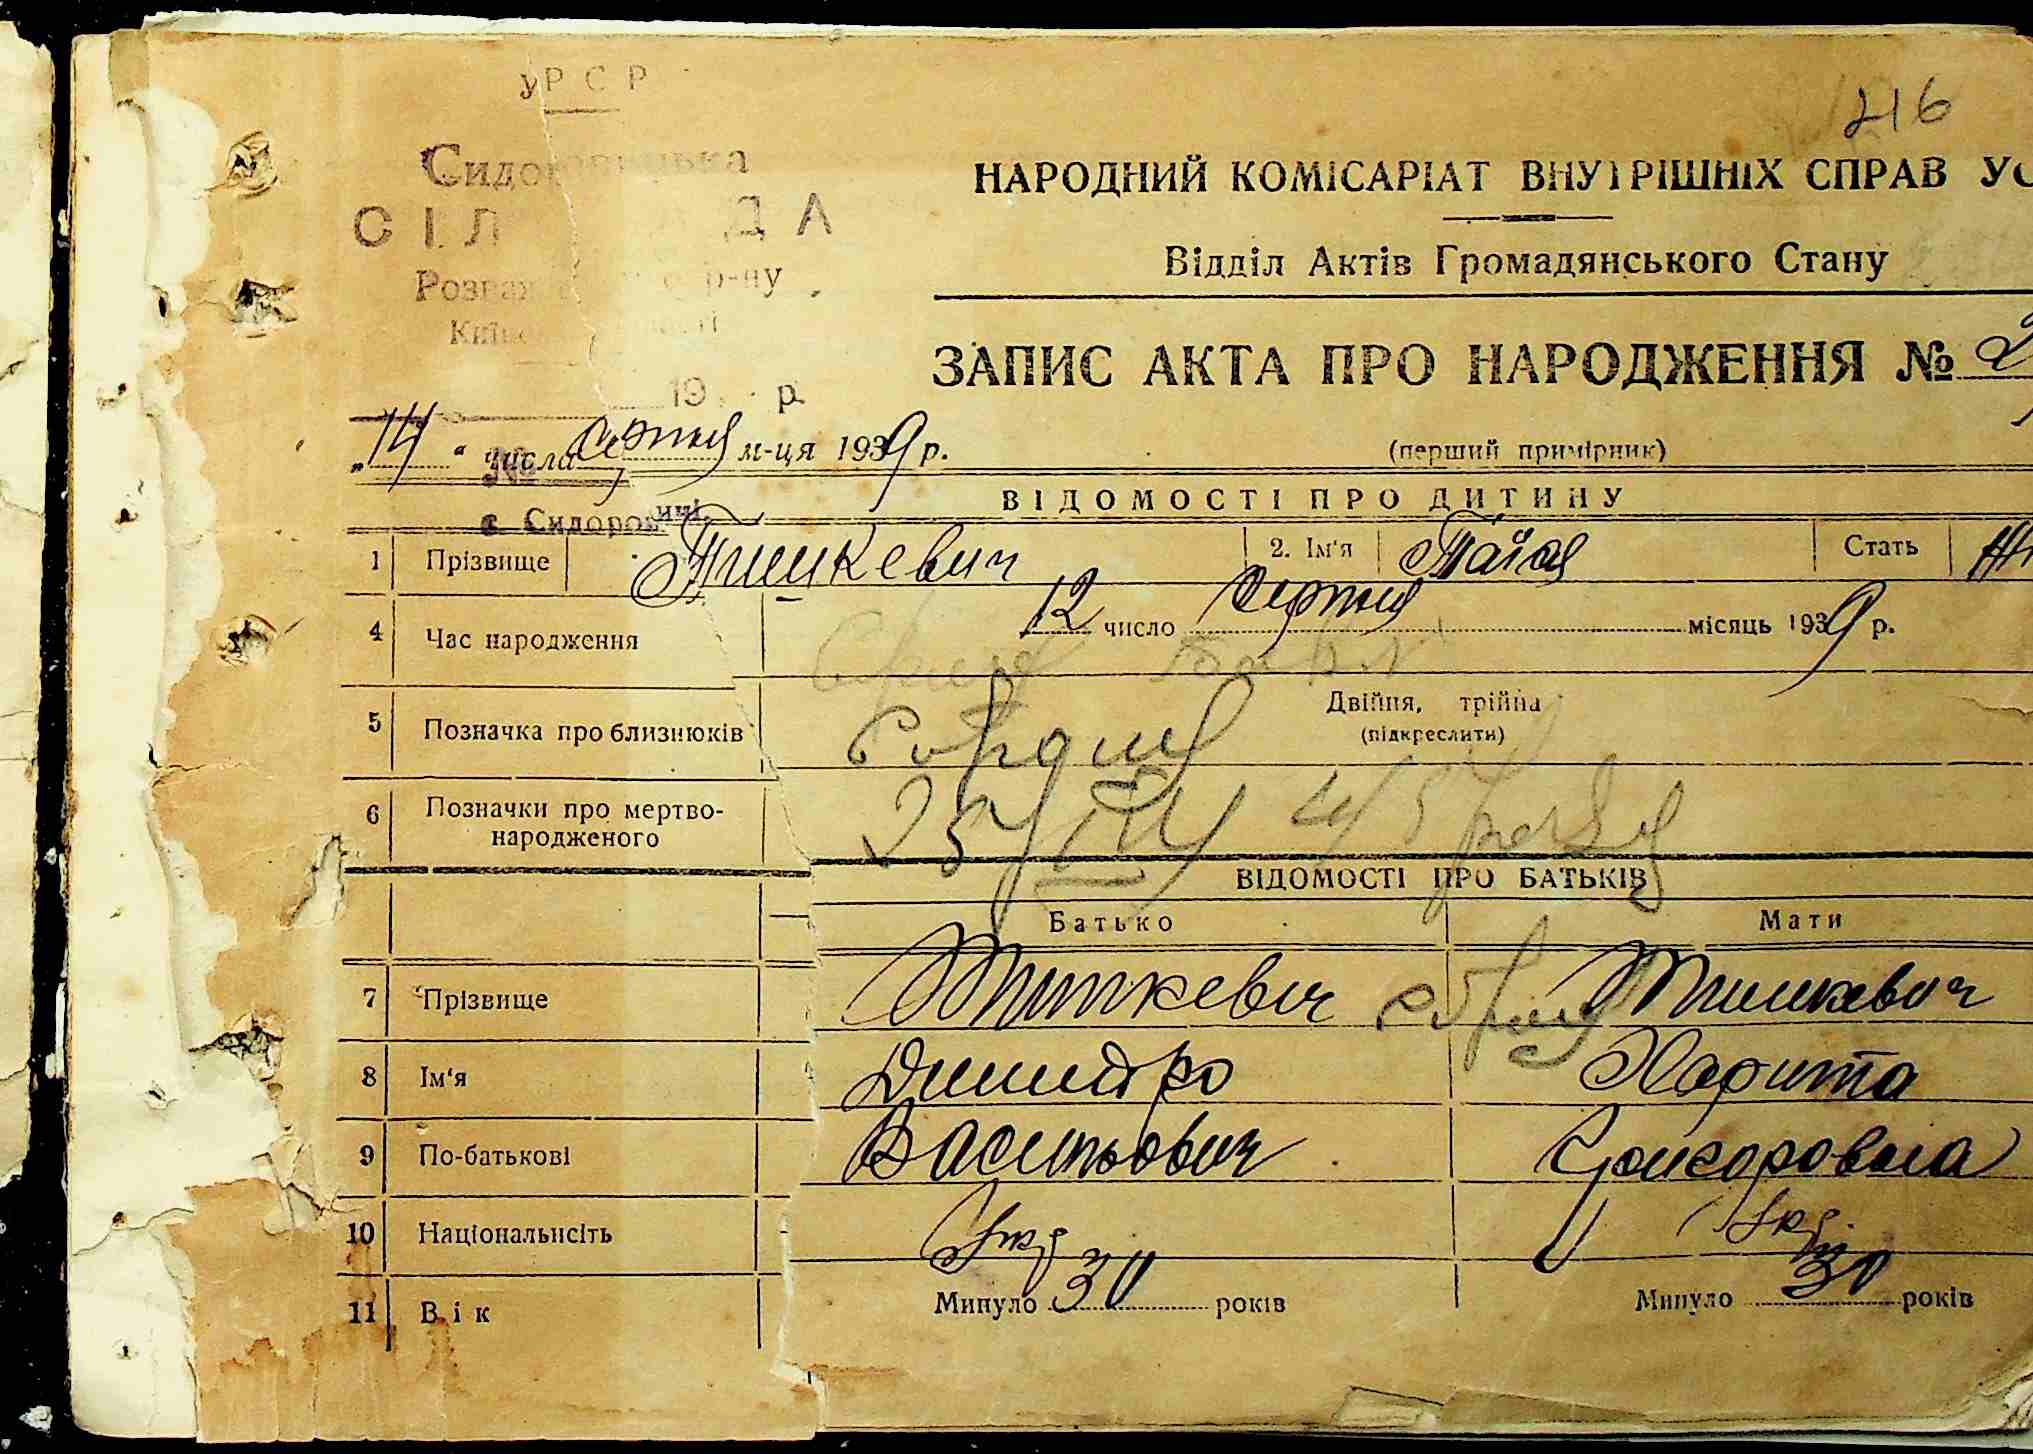 УРСР
216
НАРОДНИЙ КОМІСАРІАТ ВНУТРІШНІХ СПРАВ
СІЛ ДА
р-ну
Відділ Актів Громадянського Стану
ЗАПИС АКТА ПРО НАРОДЖЕННЯ №
19 р.
„14“ числа серпня м-ця 1939 р.
(перший примірник)
№
ВІДОМОСТІ ПРО ДИТИНУ
с. Сидоровичі
1 Прізвище Тишкевич 2. Ім'я Таїся Стать
4 Час народження 12 число серпня місяць 1939 р.
5 Позначка про близнюків Двійня, трійна
(підкреслити)
6 Позначки про мертво-
народженого
ВІДОМОСТІ ПРО БАТЬКІВ
Батько Мати
7 Прізвище Тишкевич Тишкевич
8 Ім'я Дмитро Харитя
9 По-батькові Васильович Григоровна
10 Національність Укр Укр.
11 Вік Минуло 30 років Минуло 30 років